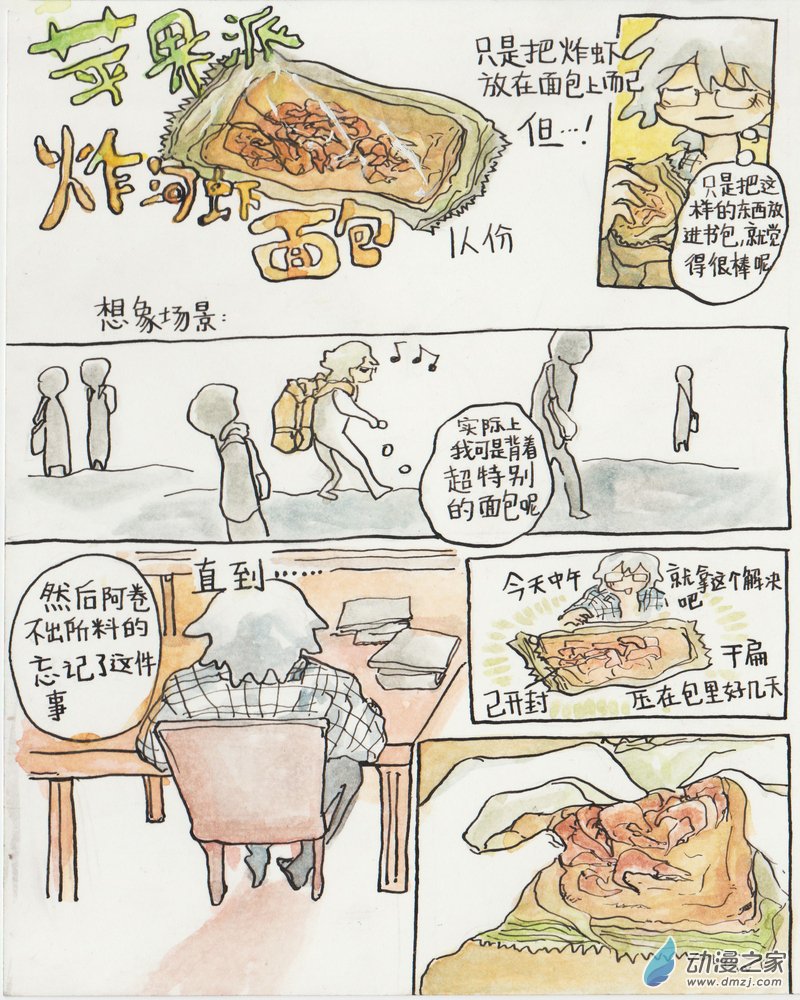 苹果派
炸河虾
面包
1人份
只是把炸虾
放在面包上而已
但…!
只是把这
样的东西放
进书包,就觉
得很棒呢
想象场景:
实际上
我可是背着
超特别
的面包呢
然后阿卷
不出所料的
忘记了这件
事
直到……
今天中午
就拿这个解决
吧
已开封
干扁
压在包里好几天
动漫之家
www.dmzj.com